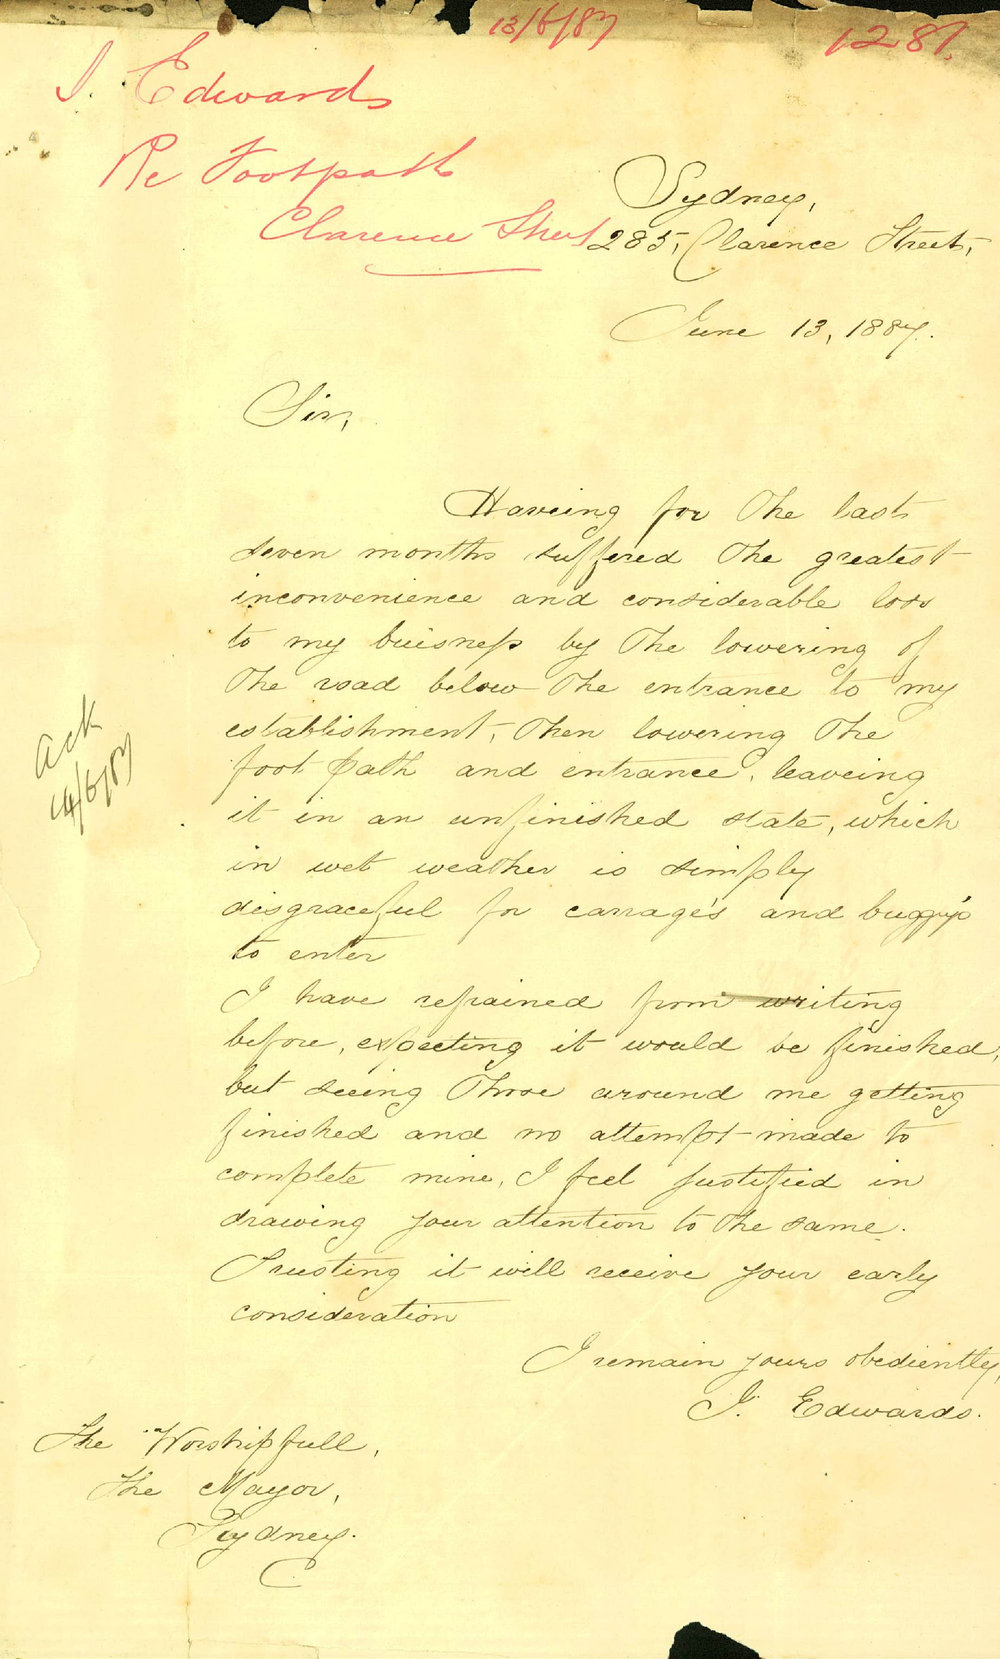 13/6/87
1281
J. Edwards
Re Footpath
Clarence Street
Sydney,
285, Clarence Street,
June 13, 1887.
Sir,
Haveing for the last
seven months suffered the greatest
inconvenience and considerable loss
to my buisness by the lowering of
the road below the entrance to my
establishment, then lowering the
foot path and entrance, leaveing
it in an unfinished state, which
in wet weather is simply
disgraceful for carrage's and buggy's
to enter
I have refrained from writing
before, expecting it would be finished,
but seeing those around me getting
finished and no attempt made to
complete mine, I feel justified in
drawing your attention to the same.
Trusting it will receive your early
consideration
I remain yours obediently,
J. Edwards.
The Worshipfull,
The Mayor,
Sydney.
Ack
14/6/87